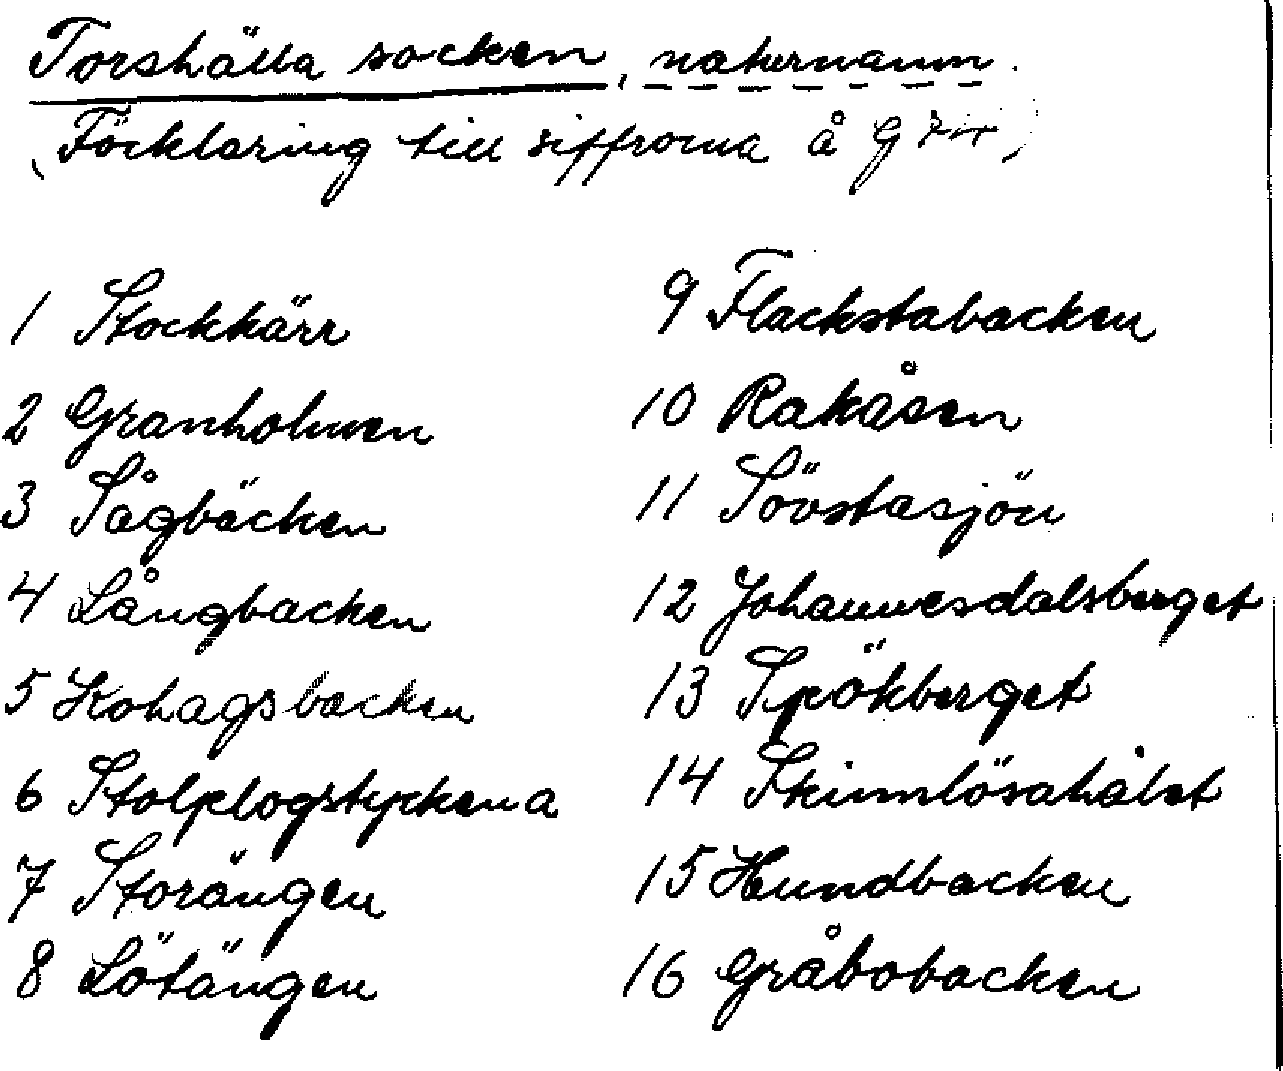 Torshälla socken, naturnamn.
(Förklaring till siffrorna å G
1 Stockkärr
2 Granholmen
3 Sågbäcken
4 Långbacken
5 Kohagsbacken
6 Stolplogstyckena
7 Storängen
8 Lötängen
9 Flackstabacken
10 Rakåsen
11 Sövstasjön
12 Johannesdalsberget
13 Spökberget
14 Skinnlösahålet
15 Hundbacken
16 Gråbobacken